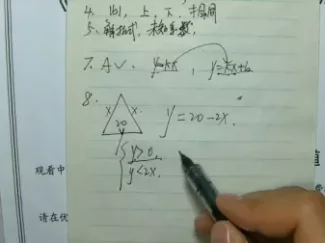 4. |b|, 上, 下,
5. 解析式, 未知系数,
7. A √. y=kx, y=kx+b
8.
x x
20
y
y=20-2x.
{ y>0
y<2x.
观看中
请在优